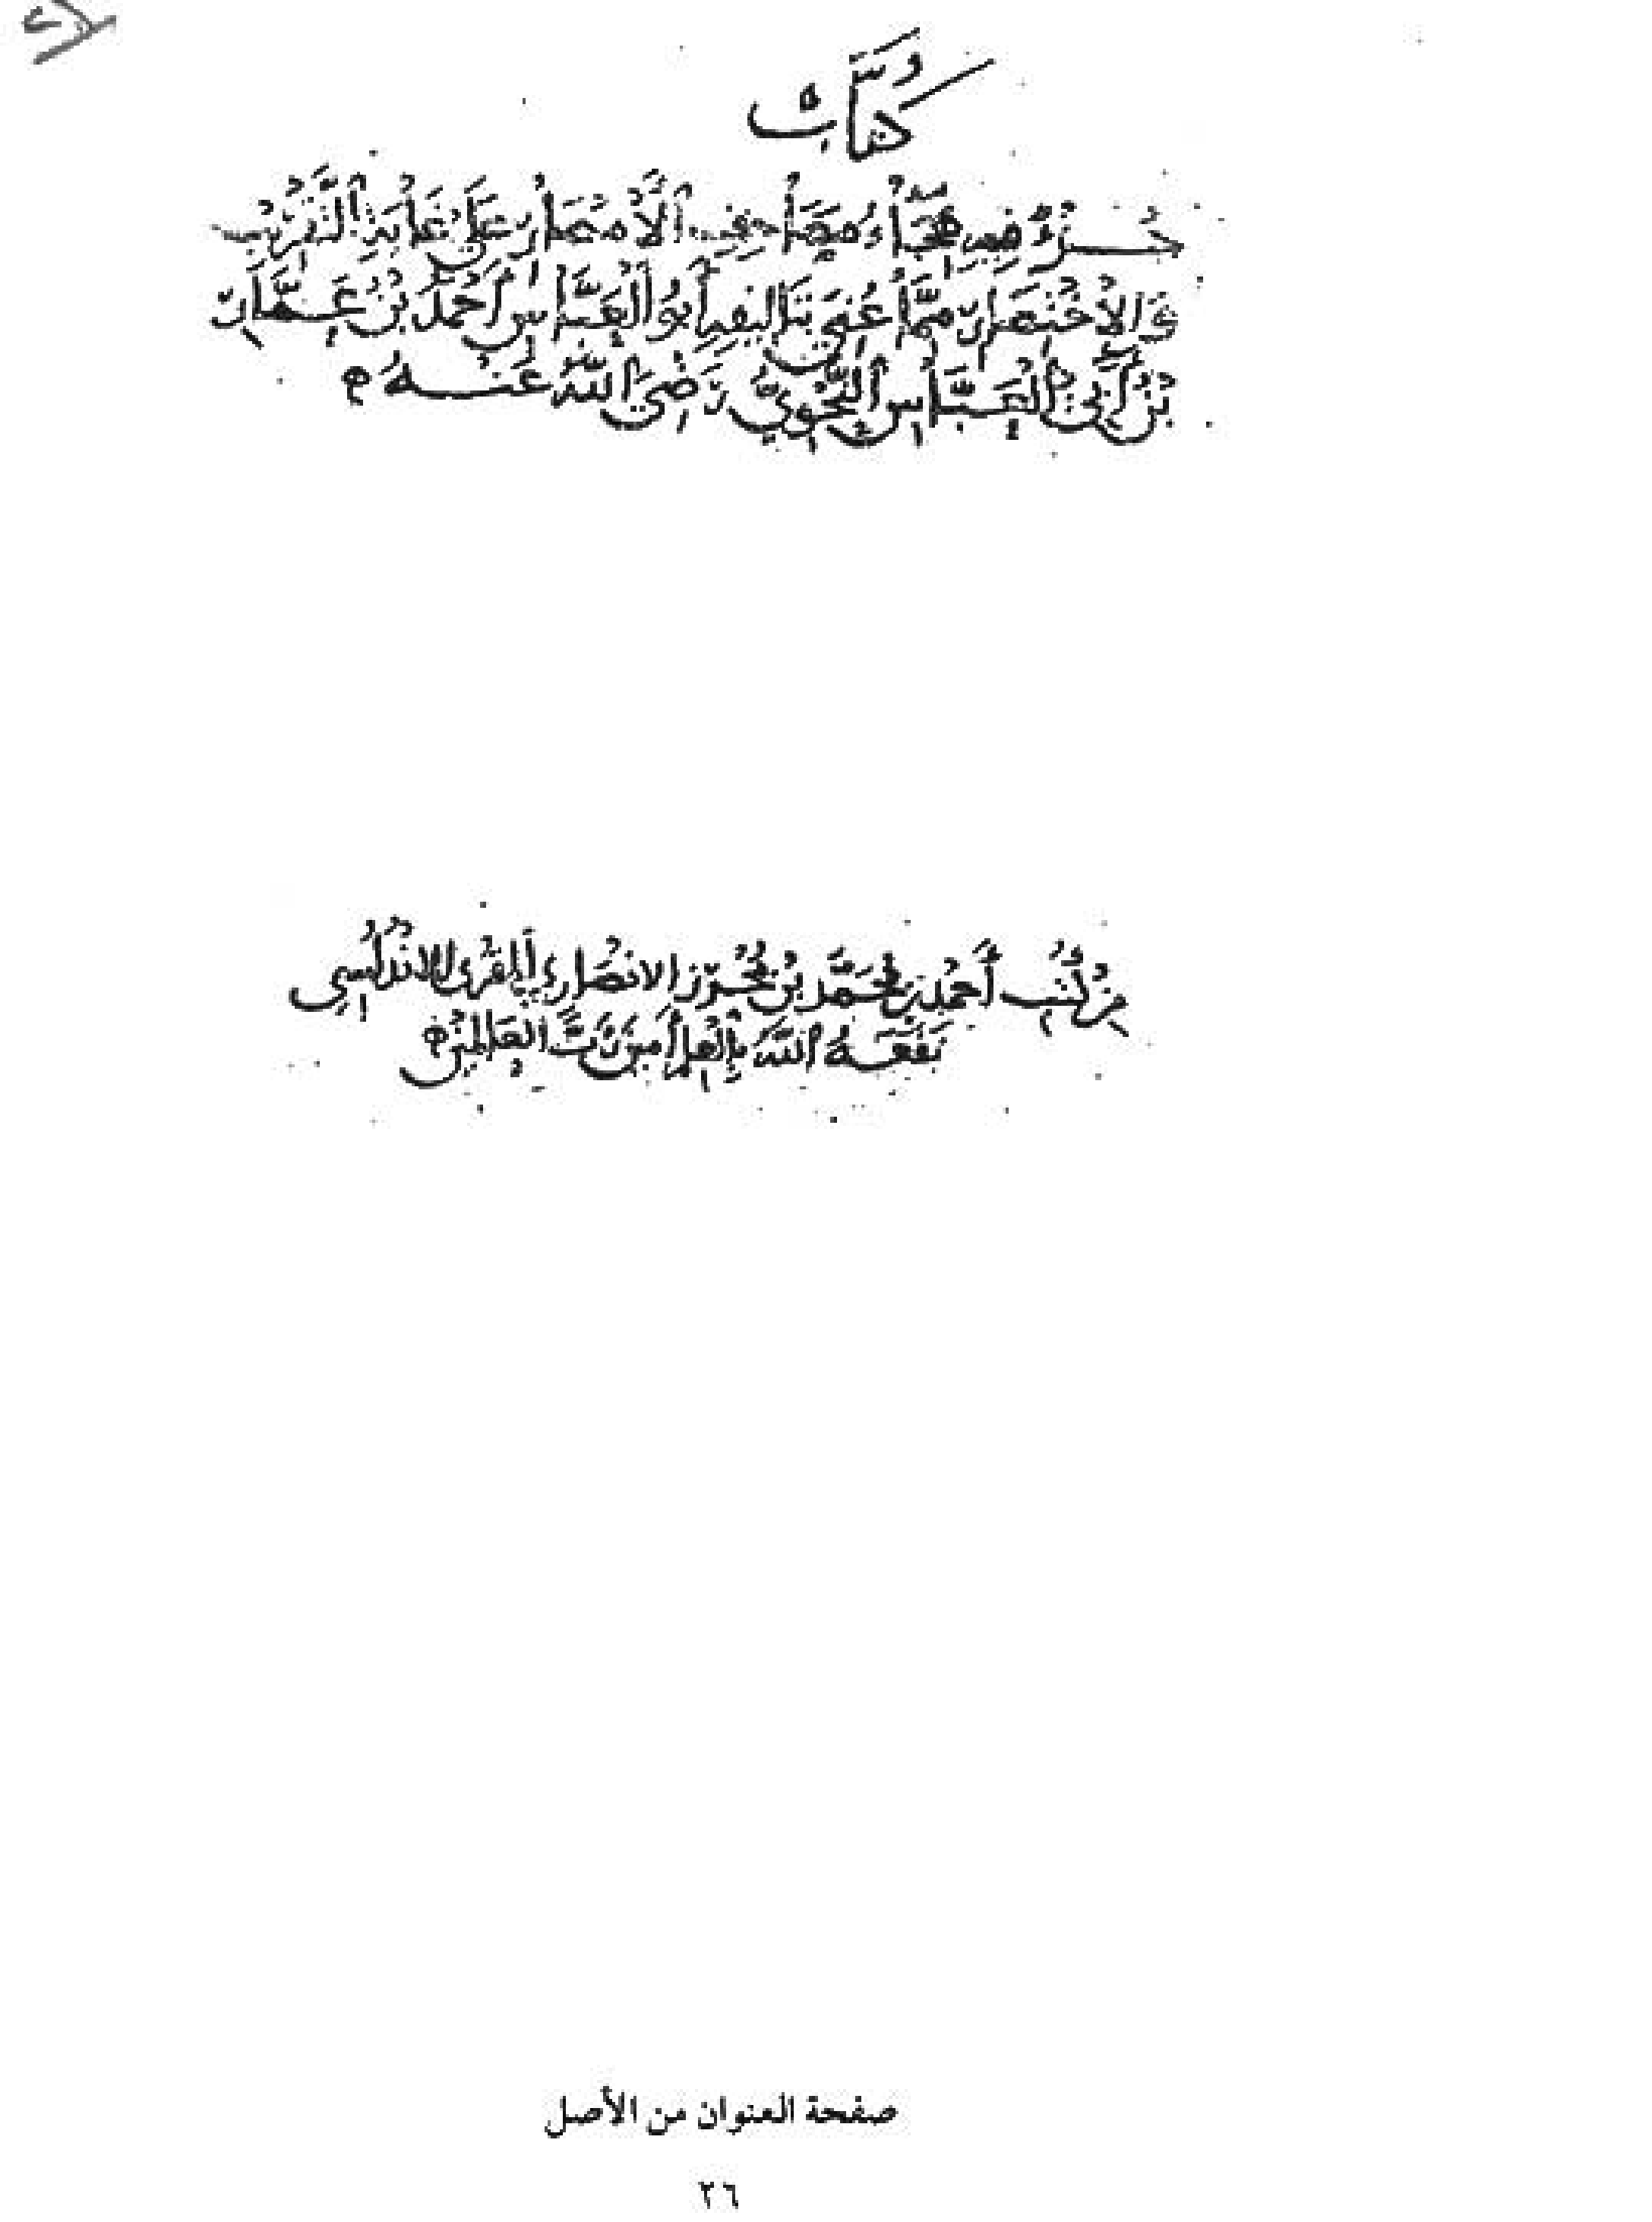 كِتَابٌ
جُزْءٌ فِيهِ هِجَاءُ مَصَاحِفِ الْأَمْصَارِ عَلَى غَايَةِ التَّقْرِيبِ
وَالِاخْتِصَارِ مِمَّا عُنِيَ بِتَأْلِيفِهِ أَبُو الْعَبَّاسِ أَحْمَدُ بْنُ عَمَّارِ
بْنِ أَبِي الْعَبَّاسِ النَّحْوِيُّ رَضِيَ اللَّهُ عَنْهُ
مِنْ كُتُبِ أَحْمَدَ بْنِ مُحَمَّدِ بْنِ مُحْرِزٍ الانْصَارِي الْمُقْرِئ الانْدَلُسِي
نَفَعَهُ اللَّهُ بِالْعِلْمِ أَمِينَ رَبَّ الْعَالَمِينَ
صفحة العنوان من الأصل
٢٦